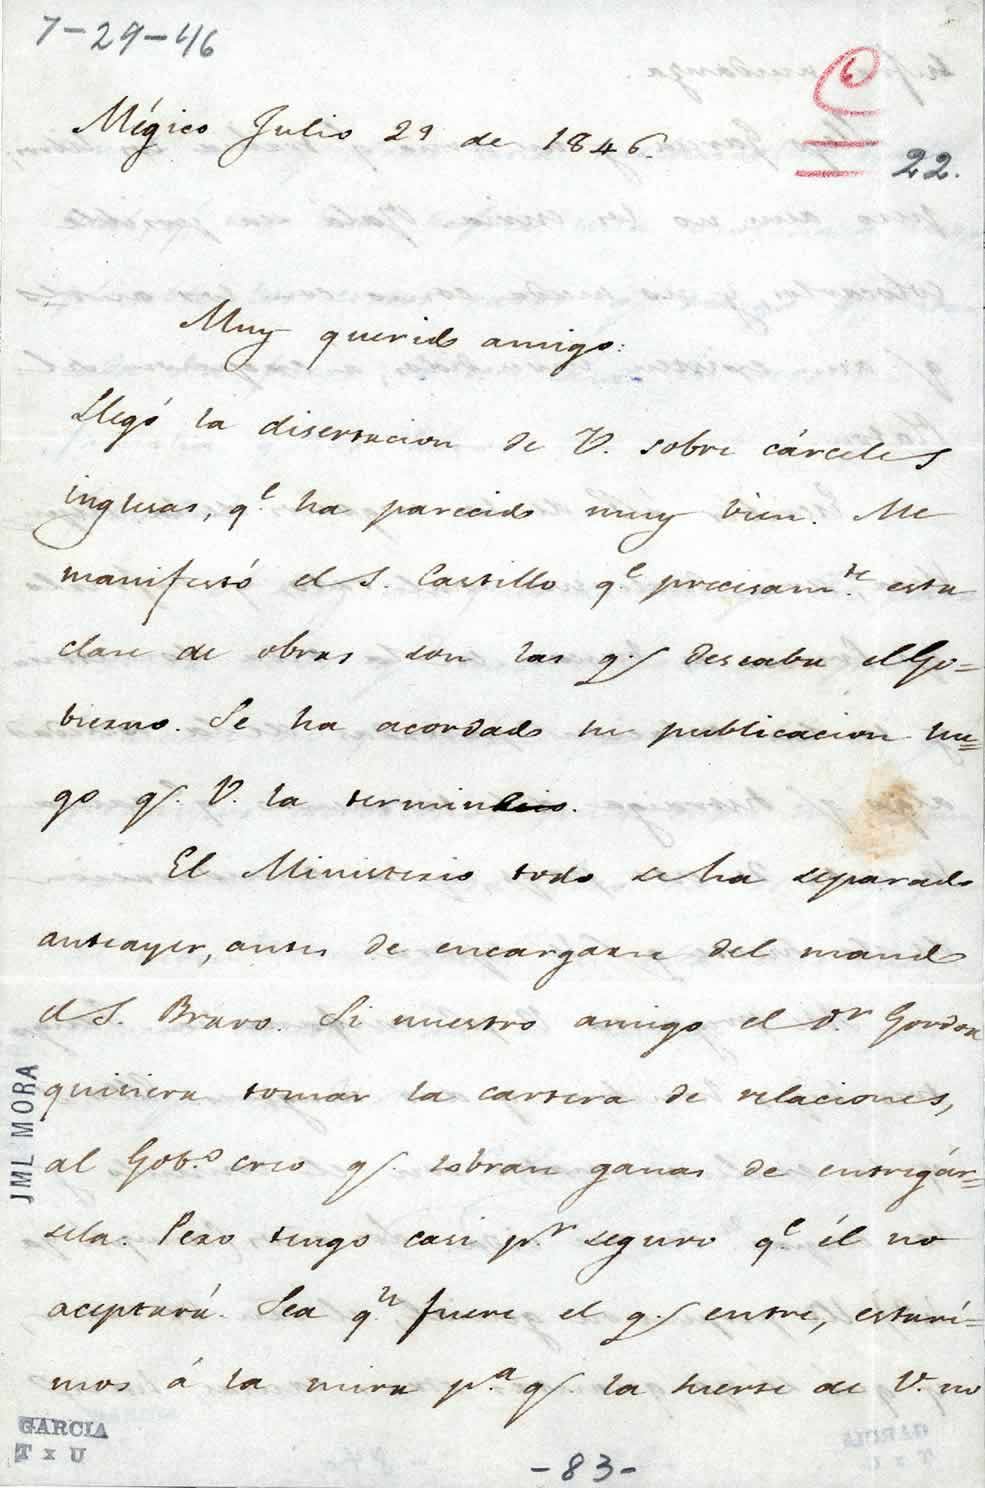 7-29-46
Mégico Julio 29 de 1846.
22.
Muy querido amigo:
Llegó la disertacion de V. sobre cárceles
inglesas, qe. ha parecido muy bien. Me
manifestó el S. Castillo qe. precisamte. esta
clase de obras son las q. deseaba el Go=
bierno. Se ha acordado su publicacion lue=
go q. V. la termine.
El Ministerio todo se ha separado
anteayer, antes de encargarse del mando
el S. Bravo. Si nuestro amigo el Dr. Gordoa
quisiera tomar la cartera de relaciones,
al Gobo. creo q. sobran ganas de entregár=
sela. Pero tengo casi pr. seguro qe. él no
aceptará. Sea qn. fuere el q. entre, estaré=
mos á la mira pa. q. la suerte de V. no
JML MORA
GARCIA
T x U
-83-